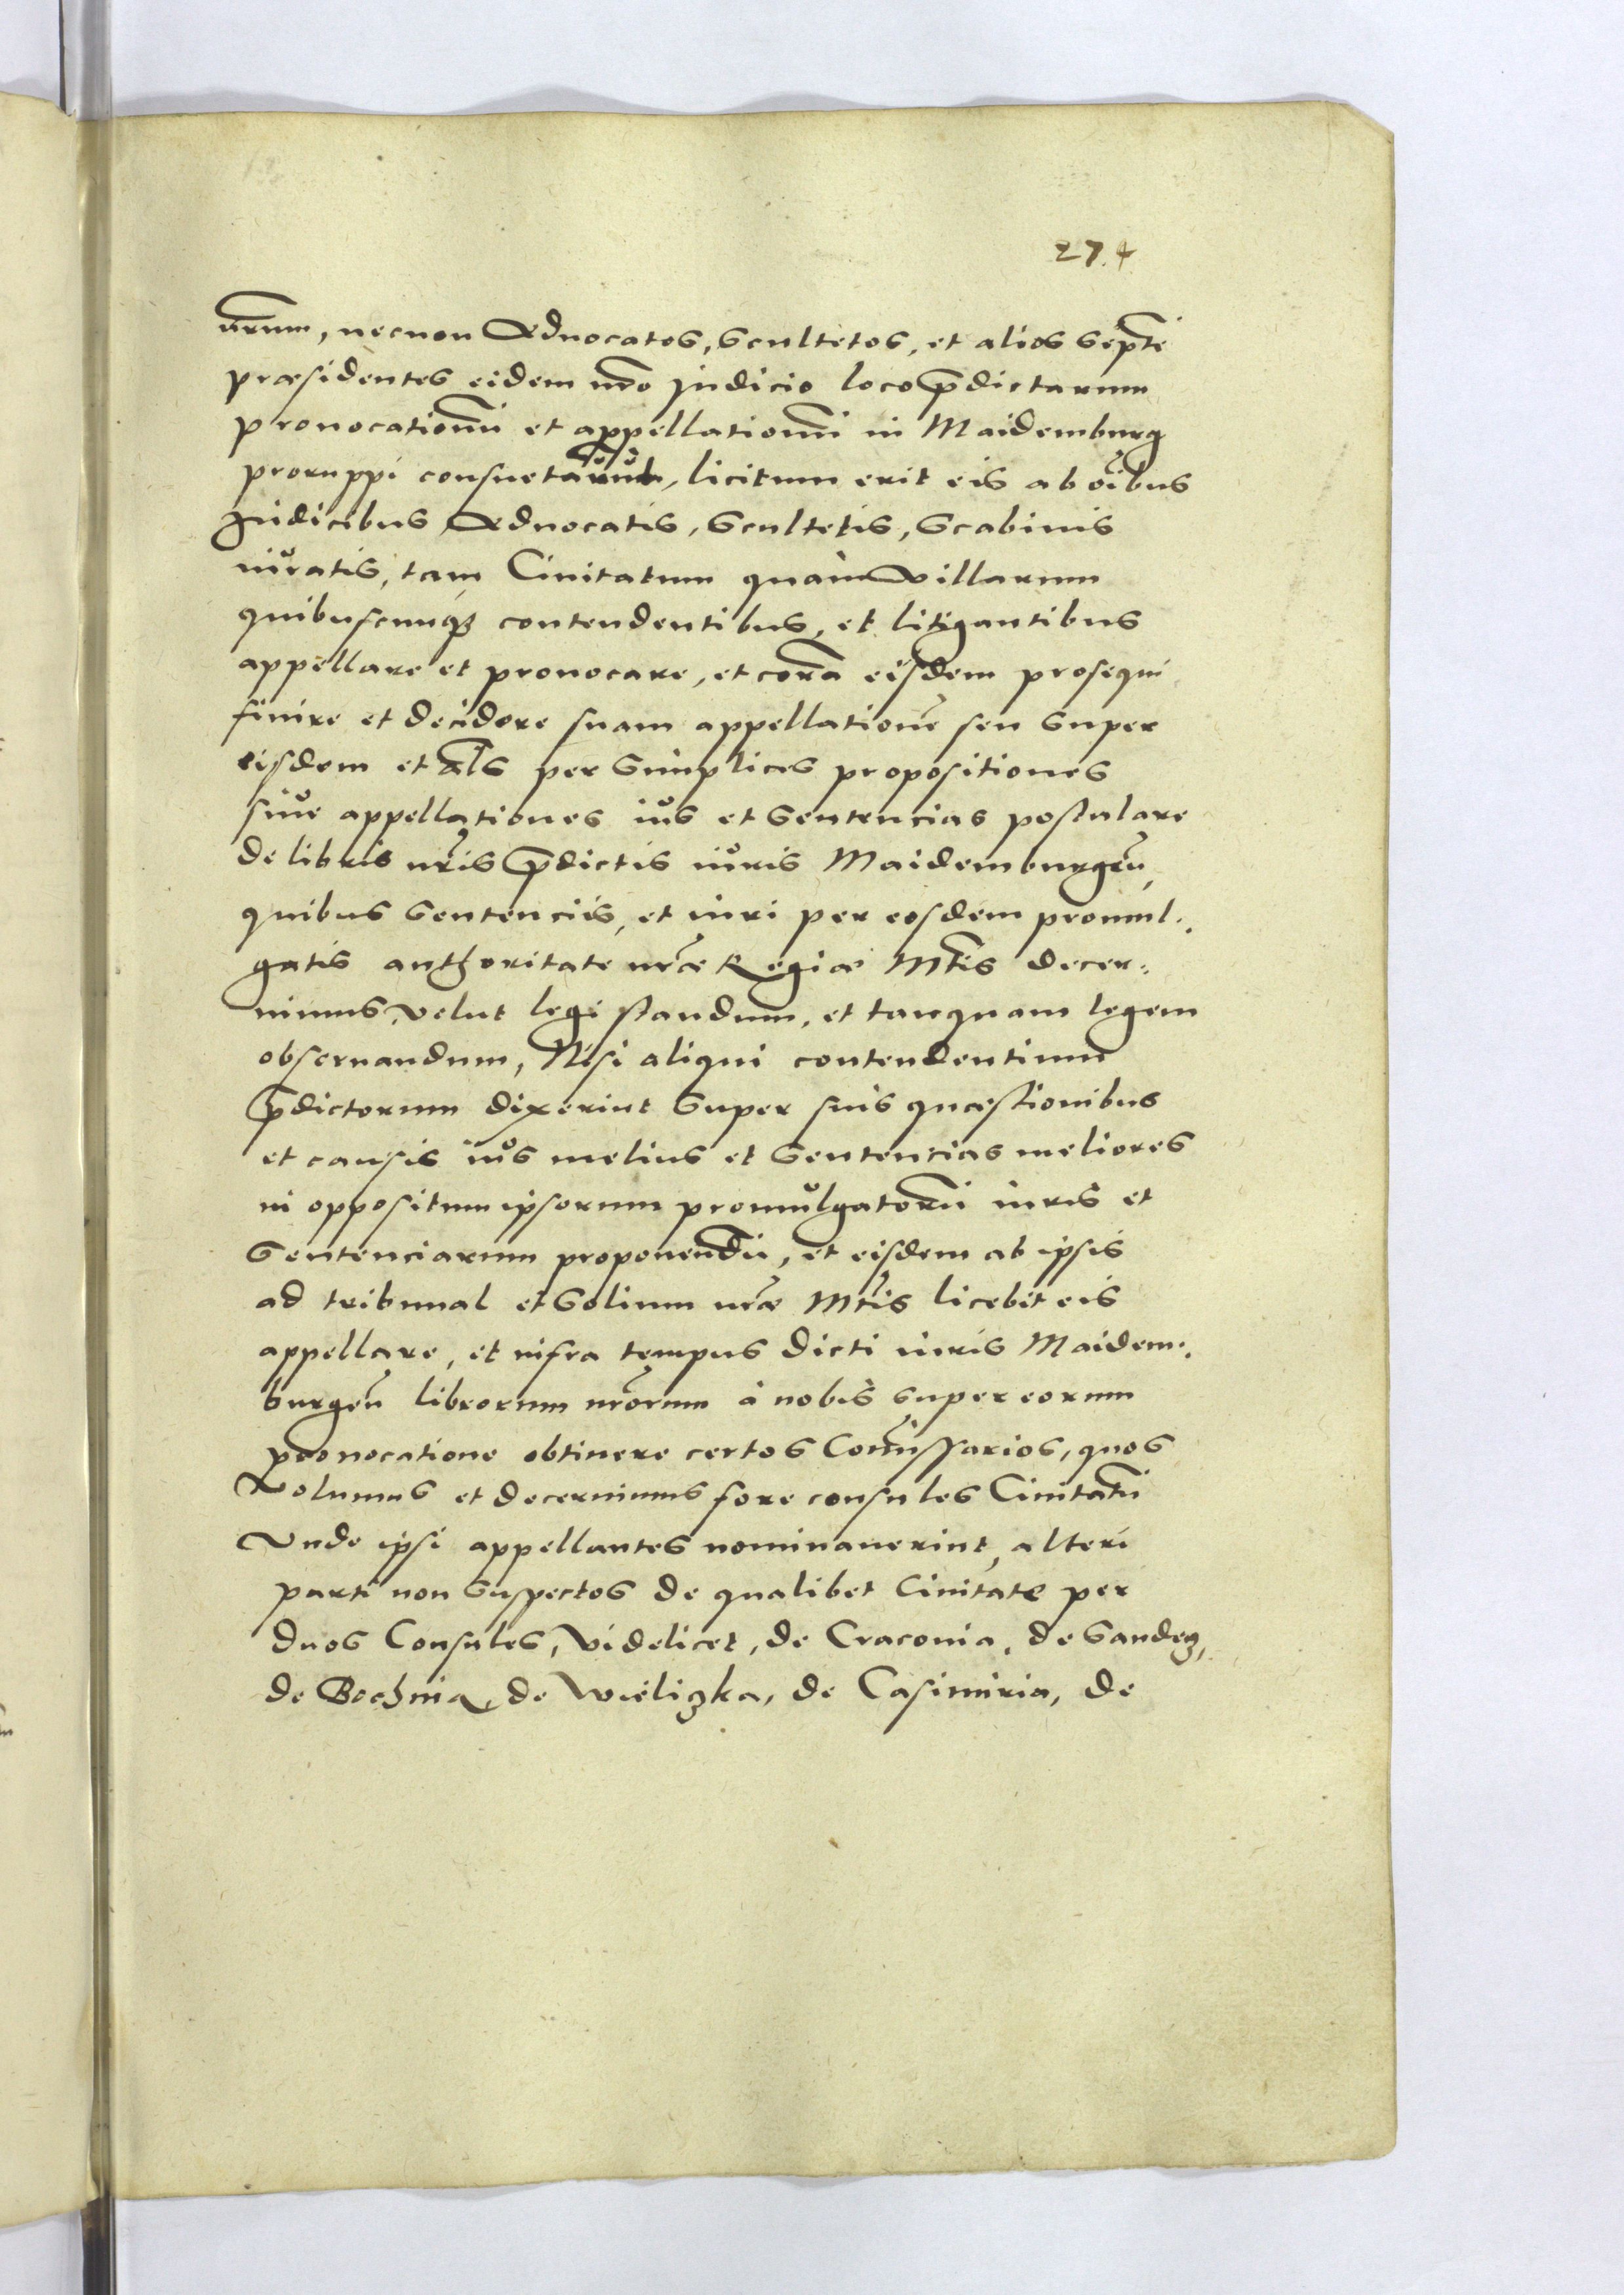 27.4
nr̃um, necnon Aduocatos, Scultetos, et alios Septẽ
præsidentes eidem nr̃o Judicio loco p̃dictarum
prouocationũ et appellationũ in Maidemburg
proruppi consuetarũ, licitum erit eis ab oĩbus
Judicibus Aduocatis, Scultetis, Scabinis
iuratis, tam Ciuitatum quàm villarum
quibuscunqꝫ contendentibus, et litigantibus
appellare et prouocare, et corã eisdem prosequi
finire et decidere suam appellationẽ seu super
eisdem et al̃s per simplices propositiones
siue appellationes ius et Sentencias postulare
de libris nr̃is p̃dictis iuris Maidemburgeñ,
quibus Sentenciis, et iuri per eosdem promul:
gatis authoritate nr̃æ Regiæ Mt̃is decer:
nimus velut legi standum, et tanquam legem
obseruandum, Nisi aliqui contendentium
p̃dictorum dixerint Super suis quæstionibus
et causis ius melius et Sentencias meliores
in oppositum ipsorum promulgatorũ iuris et
Sentenciarum proponendũ, et eisdem ab ipsis
ad tribunal et Solium nr̃æ Mt̃is licebit eis
appellare, et infra tempus dicti iuris Maidem:
burgeñ librorum nr̃orum à nobis super eorum
prouocatione obtinere certos Com̃issarios, quos
Volumus et decernimus fore consules Ciuitatũ
Vnde ipsi appellantes nominauerint, alteri
parti non suspectos de qualibet Ciuitate per
duos Consules, videlicet, de Craconia, de Sandecz,
de Bochnia, de Wieliczka, de Casimiria, de